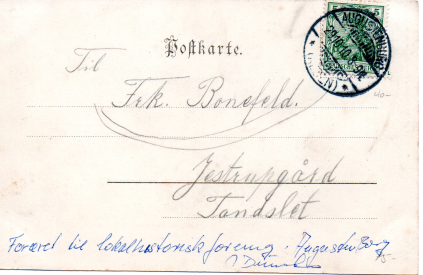 5
AUGUSTENBURG
Postkarte.
Til
Frk. Bonefeld.
Jestrupgård
Tandslet
Foræret til lokalhistorisk forening. Augustenborg